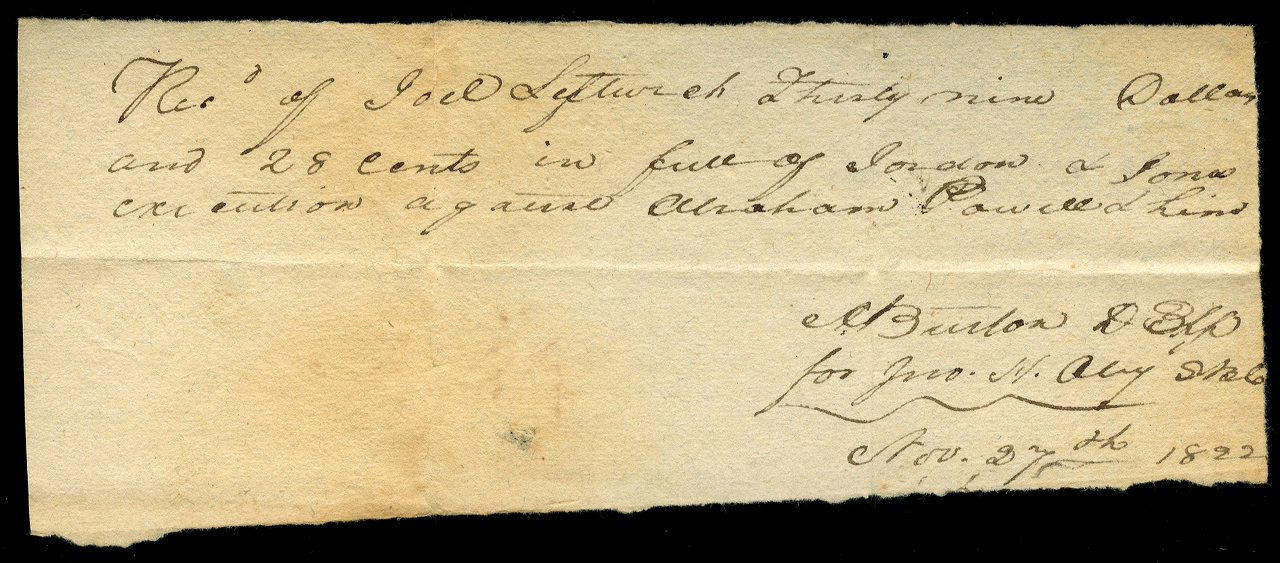 Recd of Joel Leftwich Thirty nine Dollars
and 28 cents in full of Jordon & Jones
execution against Abraham Powell & him
A. Burton D
for Jno. H. Oley
Nov. 27th 1822